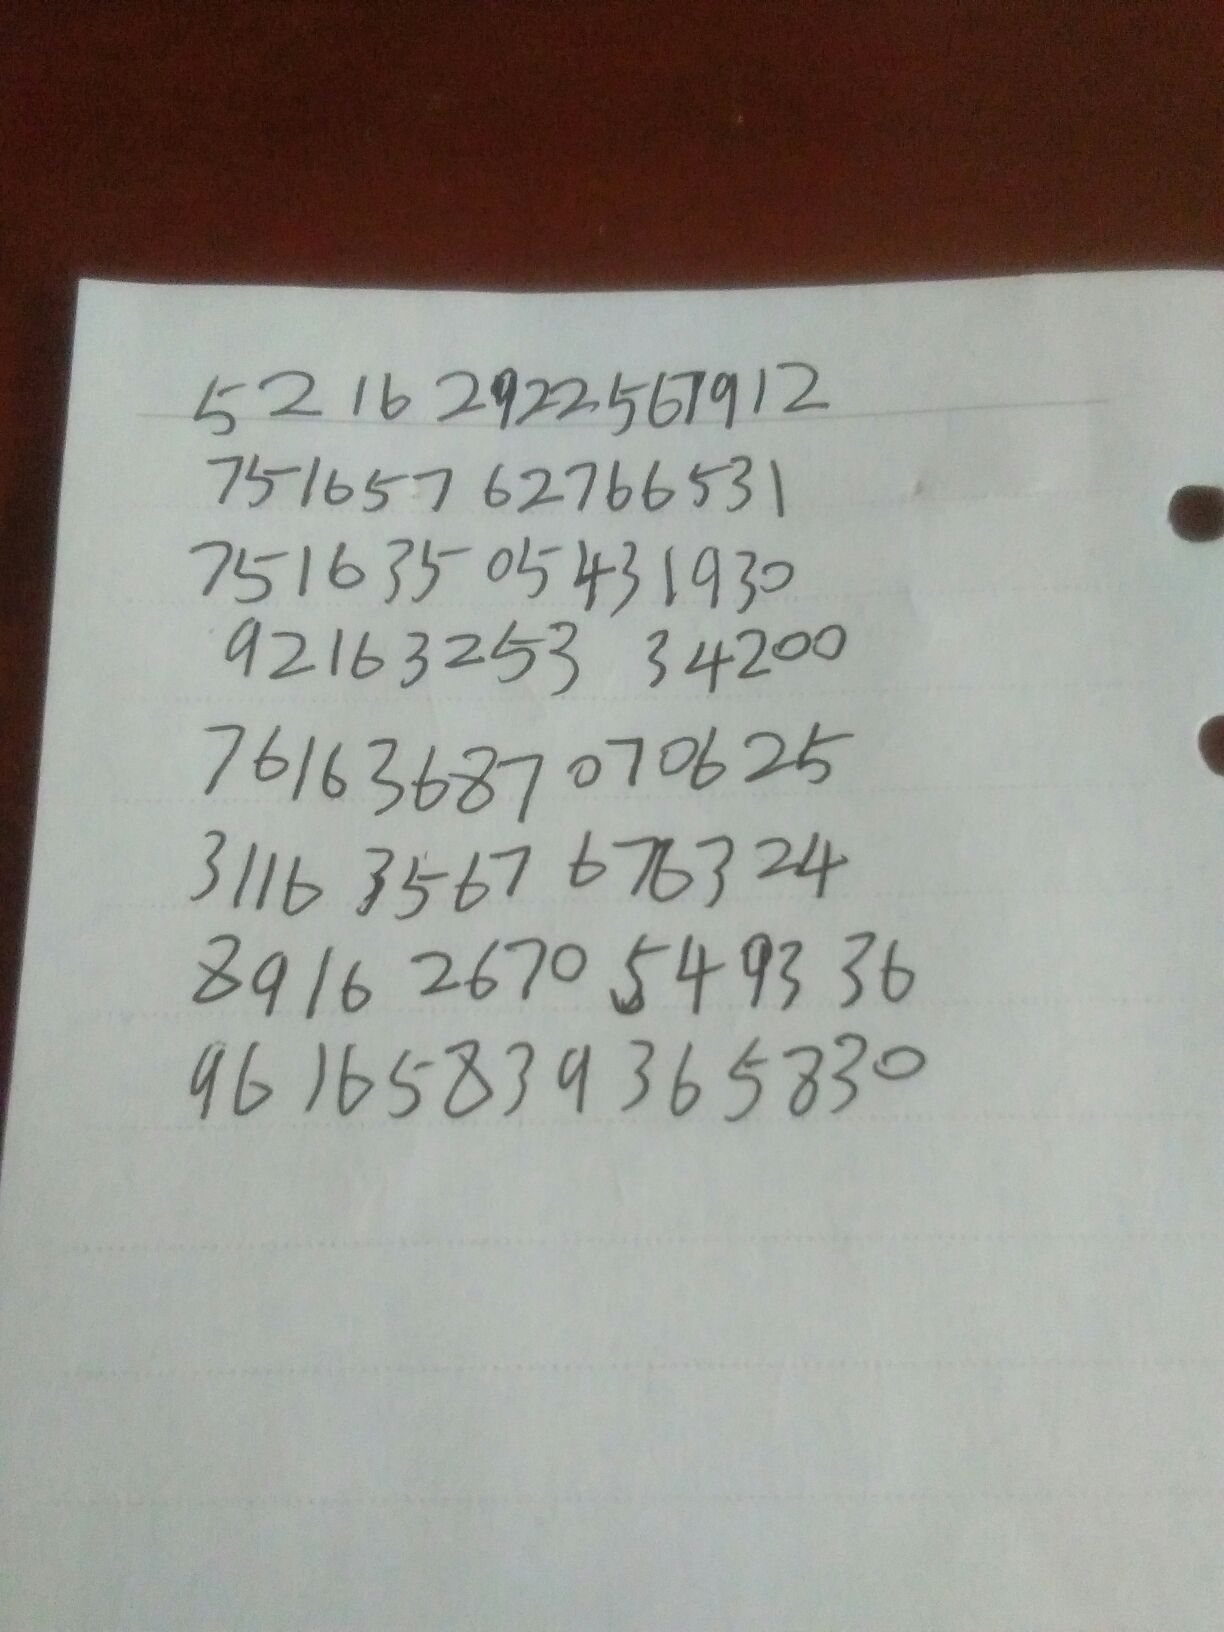 52 16 2922567912
751657 62766531
751635 05431930
92163253 34200
76163687 070625
3116 3567 676324
8916 2670 5493 36
96 165839 365830